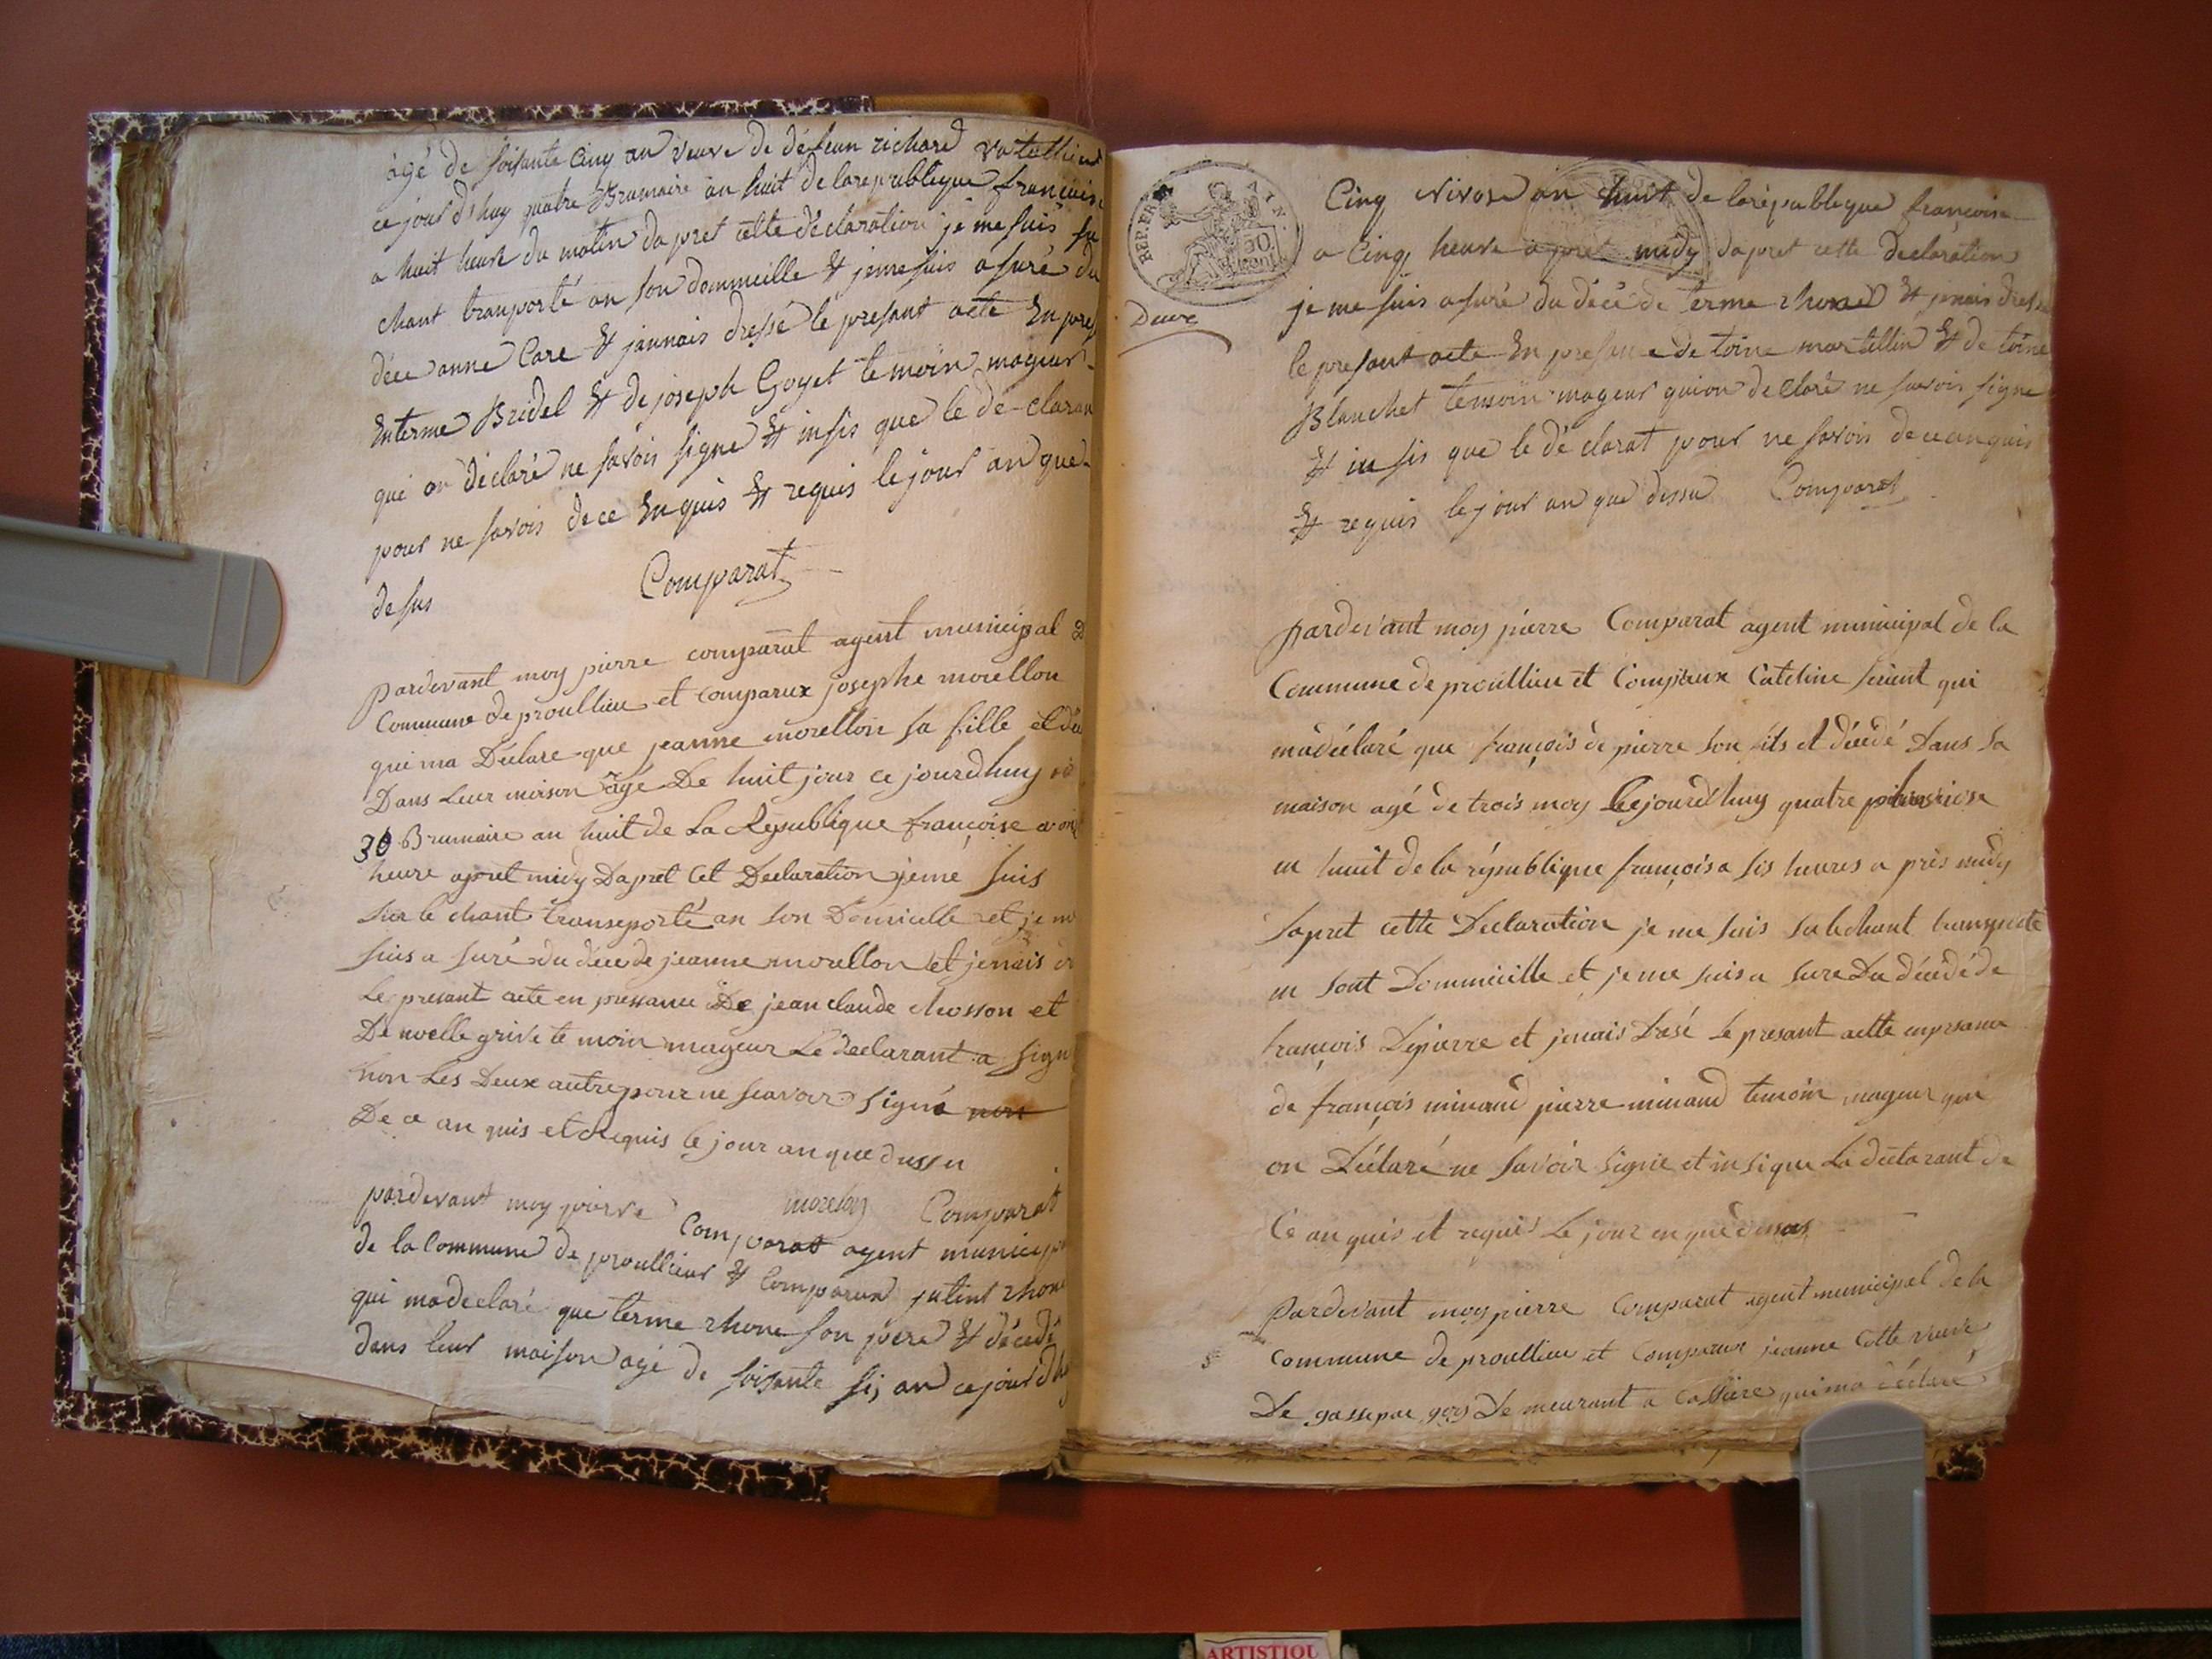 agé de soisante Cinq an veuve de défeun richard
ce jour d'huy quatre Brumaire an huit de larepublique françoise
a huit heure du matin dapret cette déclaration je me suis su
chant tranporté an son dommeille & jemesuis asuré du
déce anne Care & jannais dressé le presant acte En pres
Enterme Bridel & de joseph Goyet temoin mageur
qui on déclaré ne savoir signe & insis que le de-claran
pour ne savois dece Enquis & requis le jour an que
desus
Comparat
Pardevant moy pierre comparat agent municipal D
Commune de proullieu et comparux josephe morellon
qui ma Déclare que jeanne morellon sa fille et dée
Dans Leur maison agé De huit jour ce jourdhuy
30 Brumaire an huit de La République françoise a on
heure apret midy Dapret Cet Declaration jeme suis
sur le chant transeporté an son Domicille et je m
suis a suré du déce de jeanne morellon et jenais d
Le presant acte en pressance De jean claude chosson et
De noelle grive te moin mageur Le declarant a sign
non Les Deux autre pour ne seavoir signé non
De ce an quis et Requis le jour an que dessu
morellon Comparat
pardevant moy pierre Comparat agent municip
de la Commune de proullieu & Comparux jutint rhone
qui madeclaré que terme rhone son père & décedé
dans leur maison agé de soisante sis an cejourdh
REP. FRA
AIN
Deuve
Cinq Nivose an huit de larépublique françoise
a Cinq heure apret midy dapret cette declaration
je me suis asuré du décé de terme rhone & jenais dres
le presant acte En presance de toine martellin & de toine
Blanchet temoin mageur quion declaré ne savois signe
& insis que le dé clarat pour ne savois dece anquis
& requis le jour an que dessu Comparat
pardevant moy pierre Comparat agent municipal de la
Commune de proullieu et Comparux Cateline qui
madéclaré que françois de pierre son fits et décédé Dans sa
maison agé de trois moy Cejourdhuy quatre
an huit de la république françois a sis heures a près midy
Dapret cette Declaration je me suis su lechant transporte
en sont Dommicille et je me suis a sure Du décédé de
françois Depierre et jenais Dresé Le presant actte enpresance
de françois minand pierre minand temoin mageur qui
on Déclaré ne savoir signie et insi que La déclarant de
Ce anquis et requis Le jour en que dessus
Pardevant moy pierre Comparat agent municipal de la
Commune de proullieu et Comparux jeanne Cotte veuve
De gaspar De meurant a qui ma déclaré
ARTISTIQU